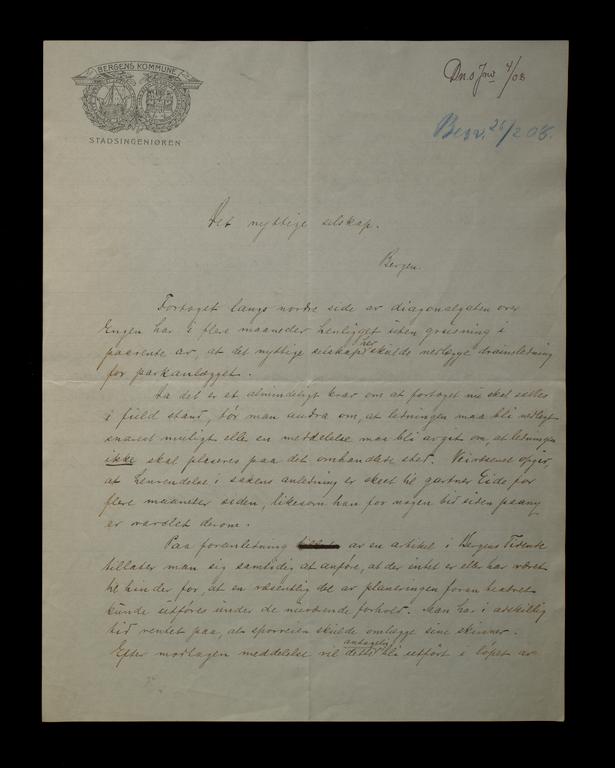 BERGENS KOMMUNE
STADSINGENIØREN
Dns Jno 4/08
Besv. 26/2 08.
Det nyttige selskap.
Bergen.
Fortoget langs nordre side av diagonalgaten over
Engen har i flere maaneder henligget uten grusning i
paavente av, at det nyttige selskap her skulde nedlægge drainsledning
for parkanlægget.
Da det er et almindeligt krav om at fortoget nu skal sættes
i fuld stand, tør man andra om, at ledningen maa bli nedlagt
snarest muligt eller en meddelelse maa bli avgit om, at ledningen
ikke skal plaseres paa det omhandlede sted. Veivæsenet opgir,
at henvendelse i sakens anledning er skeet til gartner Eide for
flere maaneter siden, likesom han for nogen tid siden paany
er varslet derom.
Paa foranledning av en artikel i Bergens Tidende
tillater man sig samtidig at anføre, at der intet er eller har været
til hinder for, at en væsentlig del av planeringen foran teatret
kunde utføres under de nuværende forhold. Man har i adskillig
tid ventet paa, at sporveien skulde omlægge sine skinner.
Efter mottagen meddelelse vil dette antagelig bli utført i løpet av